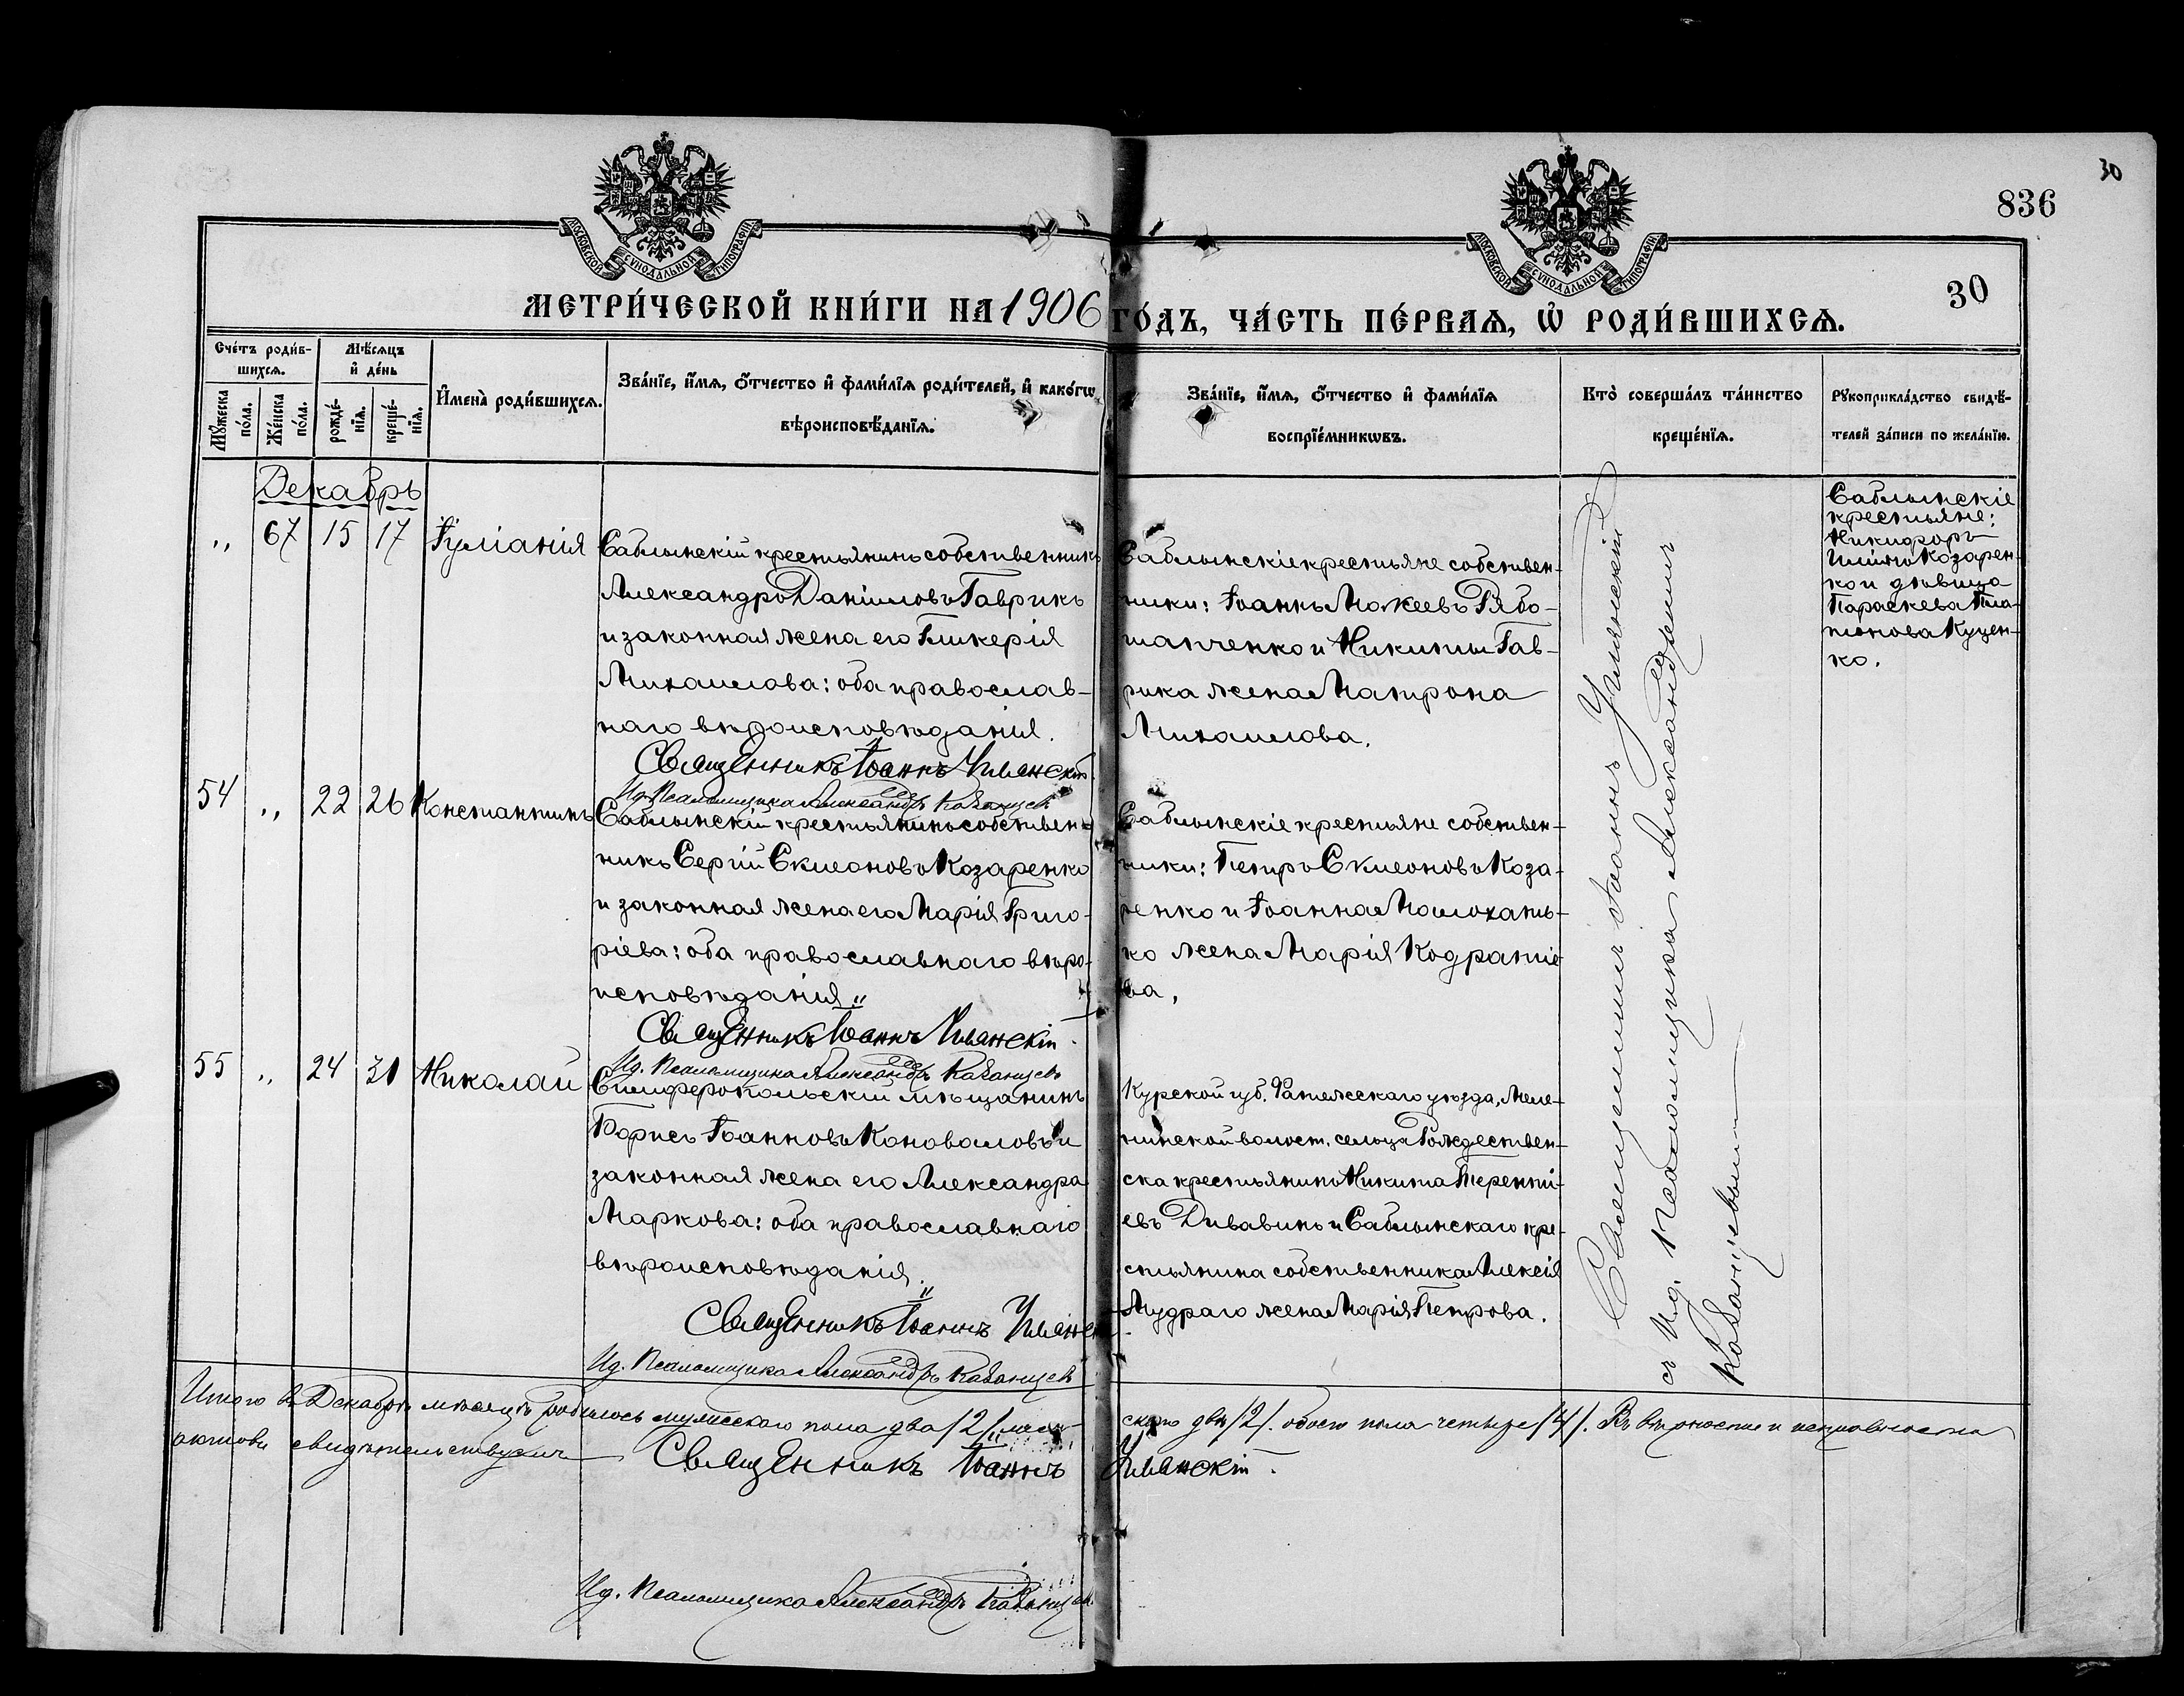 30
836
30
МОСКОВСКОЙ СѴНОДАЛЬНОЙ ТИПОГРАФІИ
МОСКОВСКОЙ СѴНОДАЛЬНОЙ ТИПОГРАФІИ
МЕТРИ́ЧЕСКОЙ КНИ́ГИ НА 1906 ГО́ДЪ, ЧА́СТЬ ПЕ́РВАѦ, Ѡ҆ РОДИ́ВШИХСѦ.
Сче́тъ роди́в-
шихсѧ.
Мѹ́жеска по́ла.
Же́нска по́ла.
Мѣ́сѧцъ
и҆ де́нь
рожде́-
нїѧ.
креще́-
нїѧ.
И҆мена̀ роди́вшихсѧ.
Зва́нїе, и҆́мѧ, ѻ҆́тчество и҆ фами́лїѧ роди́телей, и҆ како́гѡ
вѣроисповѣ́данїѧ.
Зва́нїе, и҆́мѧ, ѻ҆́тчество и҆ фами́лїѧ
воспрїе́мникѡвъ.
Кто̀ соверша́лъ та́инство
креще́нїѧ.
Рѹкоприкла́дство свидѣ́-
телей за́писи по жела́нїю.
Декабрь
„ 67 15 17 Іуліанія
Саблынскій крестьянинъ собственникъ
Александръ Даніиловъ Гаврикъ
и законная жена его Гликерія
Михаилова: оба православ-
наго вѣроисповѣданія.
Священникъ Іоаннъ Уманскій.
Ид. Псаломщика Александръ Казанцев
Саблынскіе крестьяне собствен-
ники: Іоаннъ Мокеевъ Рябо-
шапченко и Никиты Гав-
рика жена Матрона
Михаилова.
Саблынскіе
крестьяне:
Никифоръ
Козарен-
ко и дѣвица
Параскева Пла-
тонова Куцен-
ко.
54 „ 22 26 Константинъ
Саблынскій крестьянинъ собствен-
никъ Сергій Симеоновъ Козаренко
и законная жена его Марія Григо-
ріева: оба православнаго вѣро-
исповѣданія.
Священникъ Іоаннъ Уманскій.
Ид. Псаломщика Александръ Казанцевъ
Саблынскіе крестьяне собствен-
ники: Петръ Симеоновъ Коза-
ренко и Іоанна
ко жена Марія Кодратіе
ва.
55 „ 24 31 Николай
Симферопольскій мѣщанинъ
Борисъ Іоанновъ Коноваловъ и
законная жена его Александра
Маркова: оба православнаго
вѣроисповѣданія.
Священникъ Іоаннъ Уманск
Ид. Псаломщика Александръ Казанцев
Курской губ. Фатежскаго уѣзда,
волост. сельца Рождествен-
ска крестьянинъ Никита Теренті-
евъ и Саблынскаго кре-
стьянина собственника Алексія
Мудраго жена Марія Петрова.
Священникъ Іоаннъ Уманскій
съ Ид. Псаломщика Александромъ
Казанцевымъ
Итого въ Декабрѣ мѣсяцѣ родилось мужескаго пола два /2/, жен-
скаго двѣ /2/. обоего пола четыре /4/. Въ вѣрности и исправности
актовъ свидѣтельствуемъ Священникъ Іоаннъ Уманскій.
Ид. Псаломщика Александръ Казанцев